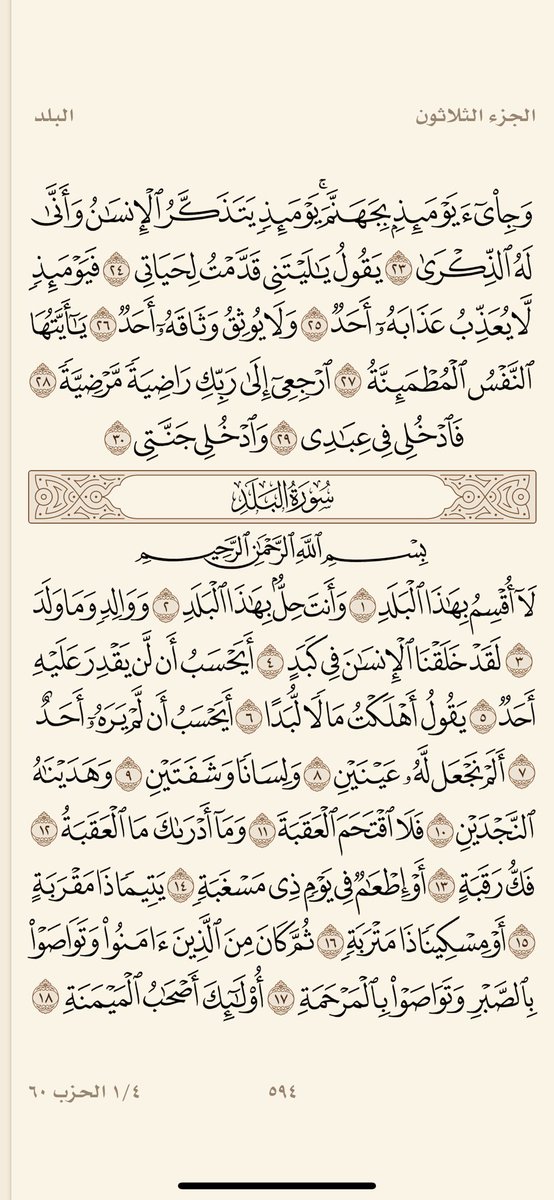 الجزء الثلاثون البلد
وَجِا۟ىٓءَ يَوْمَئِذِۭ بِجَهَنَّمَۚ يَوْمَئِذٍ يَتَذَكَّرُ ٱلْإِنسَٰنُ وَأَنَّىٰ
لَهُ ٱلذِّكْرَىٰ ٢٣ يَقُولُ يَٰلَيْتَنِى قَدَّمْتُ لِحَيَاتِى ٢٤ فَيَوْمَئِذٍ
لَّا يُعَذِّبُ عَذَابَهُۥٓ أَحَدٌ ٢٥ وَلَا يُوثِقُ وَثَاقَهُۥٓ أَحَدٌ ٢٦ يَٰٓأَيَّتُهَا
ٱلنَّفْسُ ٱلْمُطْمَئِنَّةُ ٢٧ ٱرْجِعِىٓ إِلَىٰ رَبِّكِ رَاضِيَةً مَّرْضِيَّةً ٢٨
فَٱدْخُلِى فِى عِبَٰدِى ٢٩ وَٱدْخُلِى جَنَّتِى ٣٠
سُورَةُ البَلَدِ
بِسْمِ ٱللَّهِ ٱلرَّحْمَٰنِ ٱلرَّحِيمِ
لَآ أُقْسِمُ بِهَٰذَا ٱلْبَلَدِ ١ وَأَنتَ حِلٌّۢ بِهَٰذَا ٱلْبَلَدِ ٢ وَوَالِدٍ وَمَا وَلَدَ
٣ لَقَدْ خَلَقْنَا ٱلْإِنسَٰنَ فِى كَبَدٍ ٤ أَيَحْسَبُ أَن لَّن يَقْدِرَ عَلَيْهِ
أَحَدٌ ٥ يَقُولُ أَهْلَكْتُ مَالًا لُّبَدًا ٦ أَيَحْسَبُ أَن لَّمْ يَرَهُۥٓ أَحَدٌ
٧ أَلَمْ نَجْعَل لَّهُۥ عَيْنَيْنِ ٨ وَلِسَانًا وَشَفَتَيْنِ ٩ وَهَدَيْنَٰهُ
ٱلنَّجْدَيْنِ ١٠ فَلَا ٱقْتَحَمَ ٱلْعَقَبَةَ ١١ وَمَآ أَدْرَىٰكَ مَا ٱلْعَقَبَةُ ١٢
فَكُّ رَقَبَةٍ ١٣ أَوْ إِطْعَٰمٌ فِى يَوْمٍ ذِى مَسْغَبَةٍ ١٤ يَتِيمًا ذَا مَقْرَبَةٍ
١٥ أَوْ مِسْكِينًا ذَا مَتْرَبَةٍ ١٦ ثُمَّ كَانَ مِنَ ٱلَّذِينَ ءَامَنُوا۟ وَتَوَاصَوْا۟
بِٱلصَّبْرِ وَتَوَاصَوْا۟ بِٱلْمَرْحَمَةِ ١٧ أُو۟لَٰٓئِكَ أَصْحَٰبُ ٱلْمَيْمَنَةِ ١٨
٥٩٤ ١/٤ الحزب ٦٠